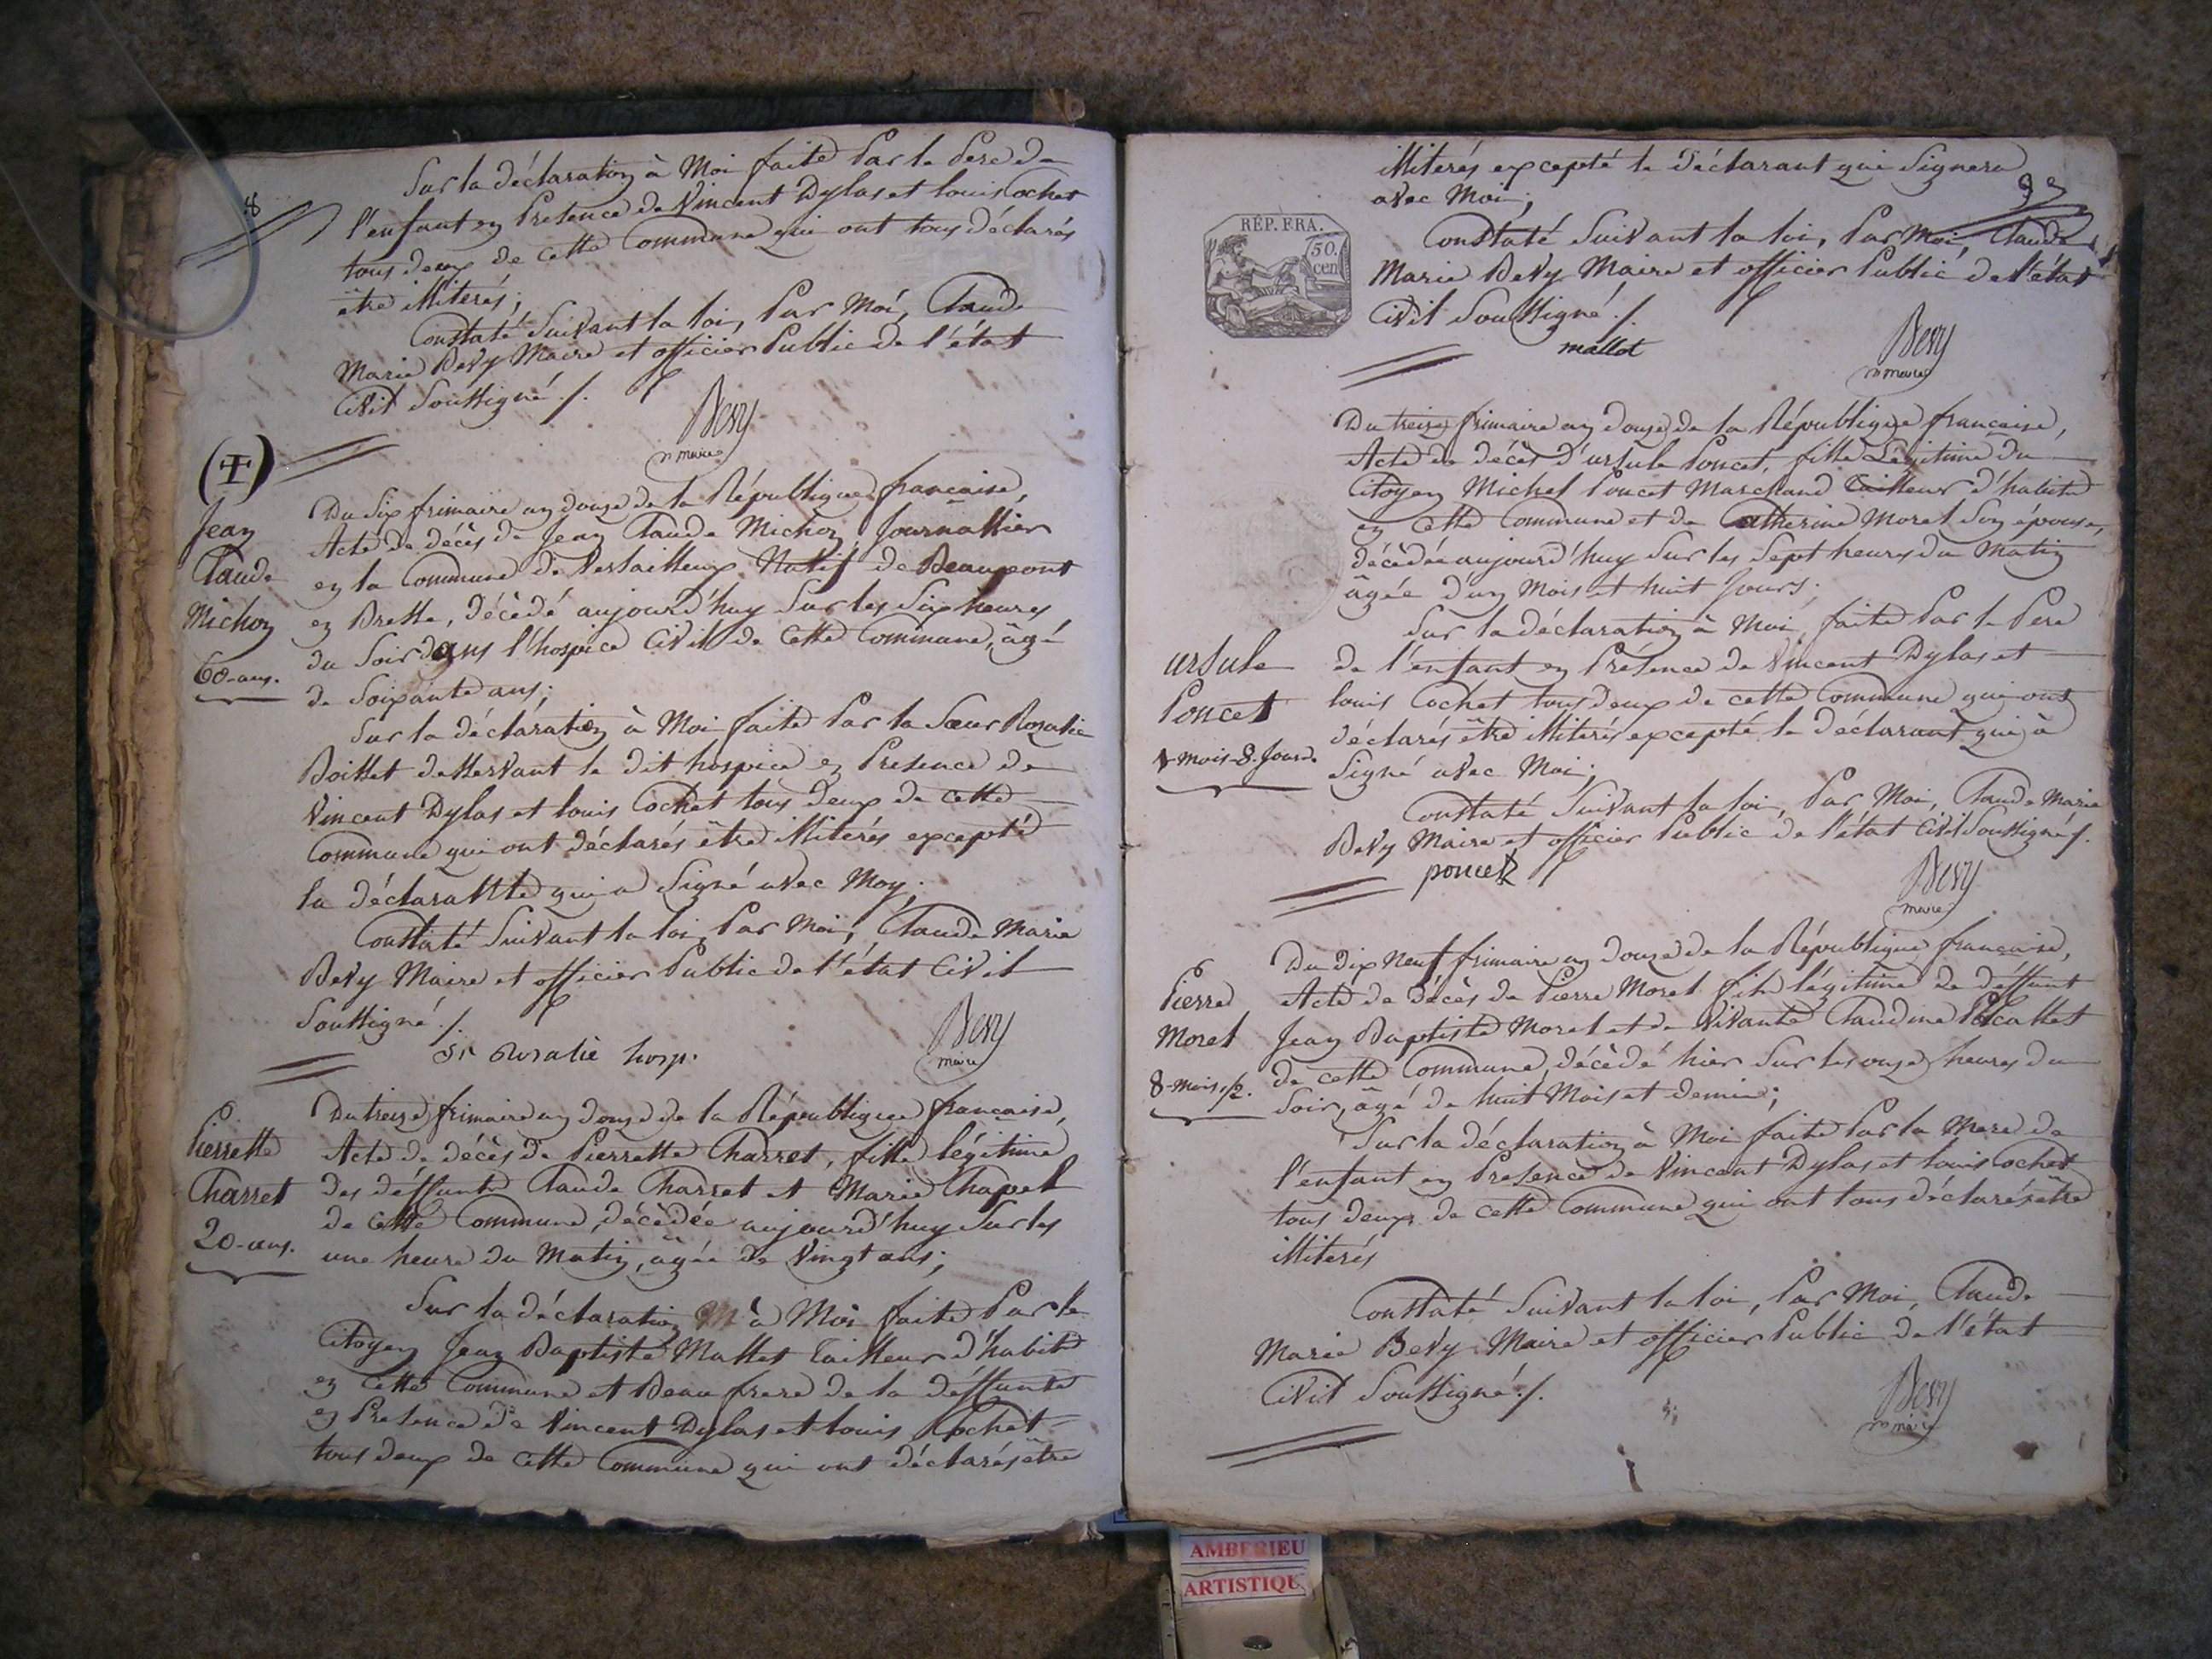 8
Sur la déclaration à Moi faite Par le Pere de
l'enfant en Presence de Vincent Dylas et louis Cochet
tous deux de cette Commune qui ont tous déclarés
être illiterés;
Constaté Suivant la loi, Par Moi, Claude
Marie Bevy Maire et officier Public de l'état
Civil Soussigné ./.
Bevy
maire
Jean
Claude
Michon
60-ans.
Du Six frimaire an douze de la République française,
Acte de décès de Jean Claude Michon Journallier
en la Commune de Versailleux Natif de Beaupont
en Bresse, décèdé aujourd'huy Sur les Six heures
du Soir dans l'hospice Civil de cette Commune, âgé
de Soixante ans;
Sur la déclaration à Moi faite Par la Sœur Rozalie
Boillet desservant le dit hospice en Presence de
Vincent Dylas et louis Cochet tous deux de cette
Commune qui ont déclarés être illiterés excepté
la déclarante qui a Signé avec Moy;
Constaté Suivant la loi, Par Moi, Claude Marie
Bevy Maire et officier Public de l'état Civil
Soussigné ./.
Sr Rosalie hosp.
Bevy
maire
Pierrette
Charret
20-ans.
Du treize frimaire an douze de la République française,
Acte de décès de Pierrette Charret, fille légitime
des déffunts Claude Charret et Marie Chapel
de cette Commune, décèdée aujourd'huy Sur les
une heure du Matin, âgée de Vingt ans;
Sur la déclaration à Moi faite Par le
Citoyen Jean Baptiste Mallet Tailleur d'habits
en cette Commune et Beau frere de la déffunte
en Presence de Vincent Dylas et louis Cochet
tous deux de cette Commune qui ont déclarés être
illiterés excepté le déclarant qui Signera
avec Moi;
RÉP. FRA.
50.
cen
Constaté Suivant la loi, Par Moi, Claude
Marie Bevy Maire et officier Public de l'état
Civil Soussigné ./.
mallot
Bevy
maire
Ursule
Poncet
1 mois-8-Jours.
Du treize frimaire an douze de la République française,
Acte de décès d'ursule Poncet, fille Légitime du
Citoyen Michel Poncet Marchand Tailleur d'habits
en cette Commune et de Catherine Morel Son épouse,
décèdée aujourd'huy Sur les Sept heures du Matin
âgée d'un Mois et huit Jours;
Sur la déclaration à Moi faite Par le Pere
de l'enfant en Présence de Vincent Dylas et
louis Cochet tous deux de cette Commune qui ont
déclarés être illiterés excepté le déclarant qui à
Signé avec Moi;
Constaté Suivant la loi, Par Moi, Claude Marie
Bevy Maire et officier Public de l'état Civil Soussigné ./.
poncet
Bevy
maire
Pierre
Morel
8-mois ½.
Du dix Neuf frimaire an douze de la République française,
Acte de décès de Pierre Morel fils légitime de déffunt
Jean Baptiste Morel et de Vivante Claudine
de cette Commune, décèdé hier Sur les onze heures du
Soir, âgé de huit Mois et demi;
Sur la déclaration à Moi faite Par la Mere de
l'enfant en Presence de Vincent Dylas et louis Cochet
tous deux de cette Commune qui ont tous déclarés être
illiterés
Constaté Suivant la loi, Par Moi, Claude
Marie Bevy Maire et officier Public de l'état
Civil Soussigné ./.
Bevy
maire
AMBERIEU
ARTISTIQU